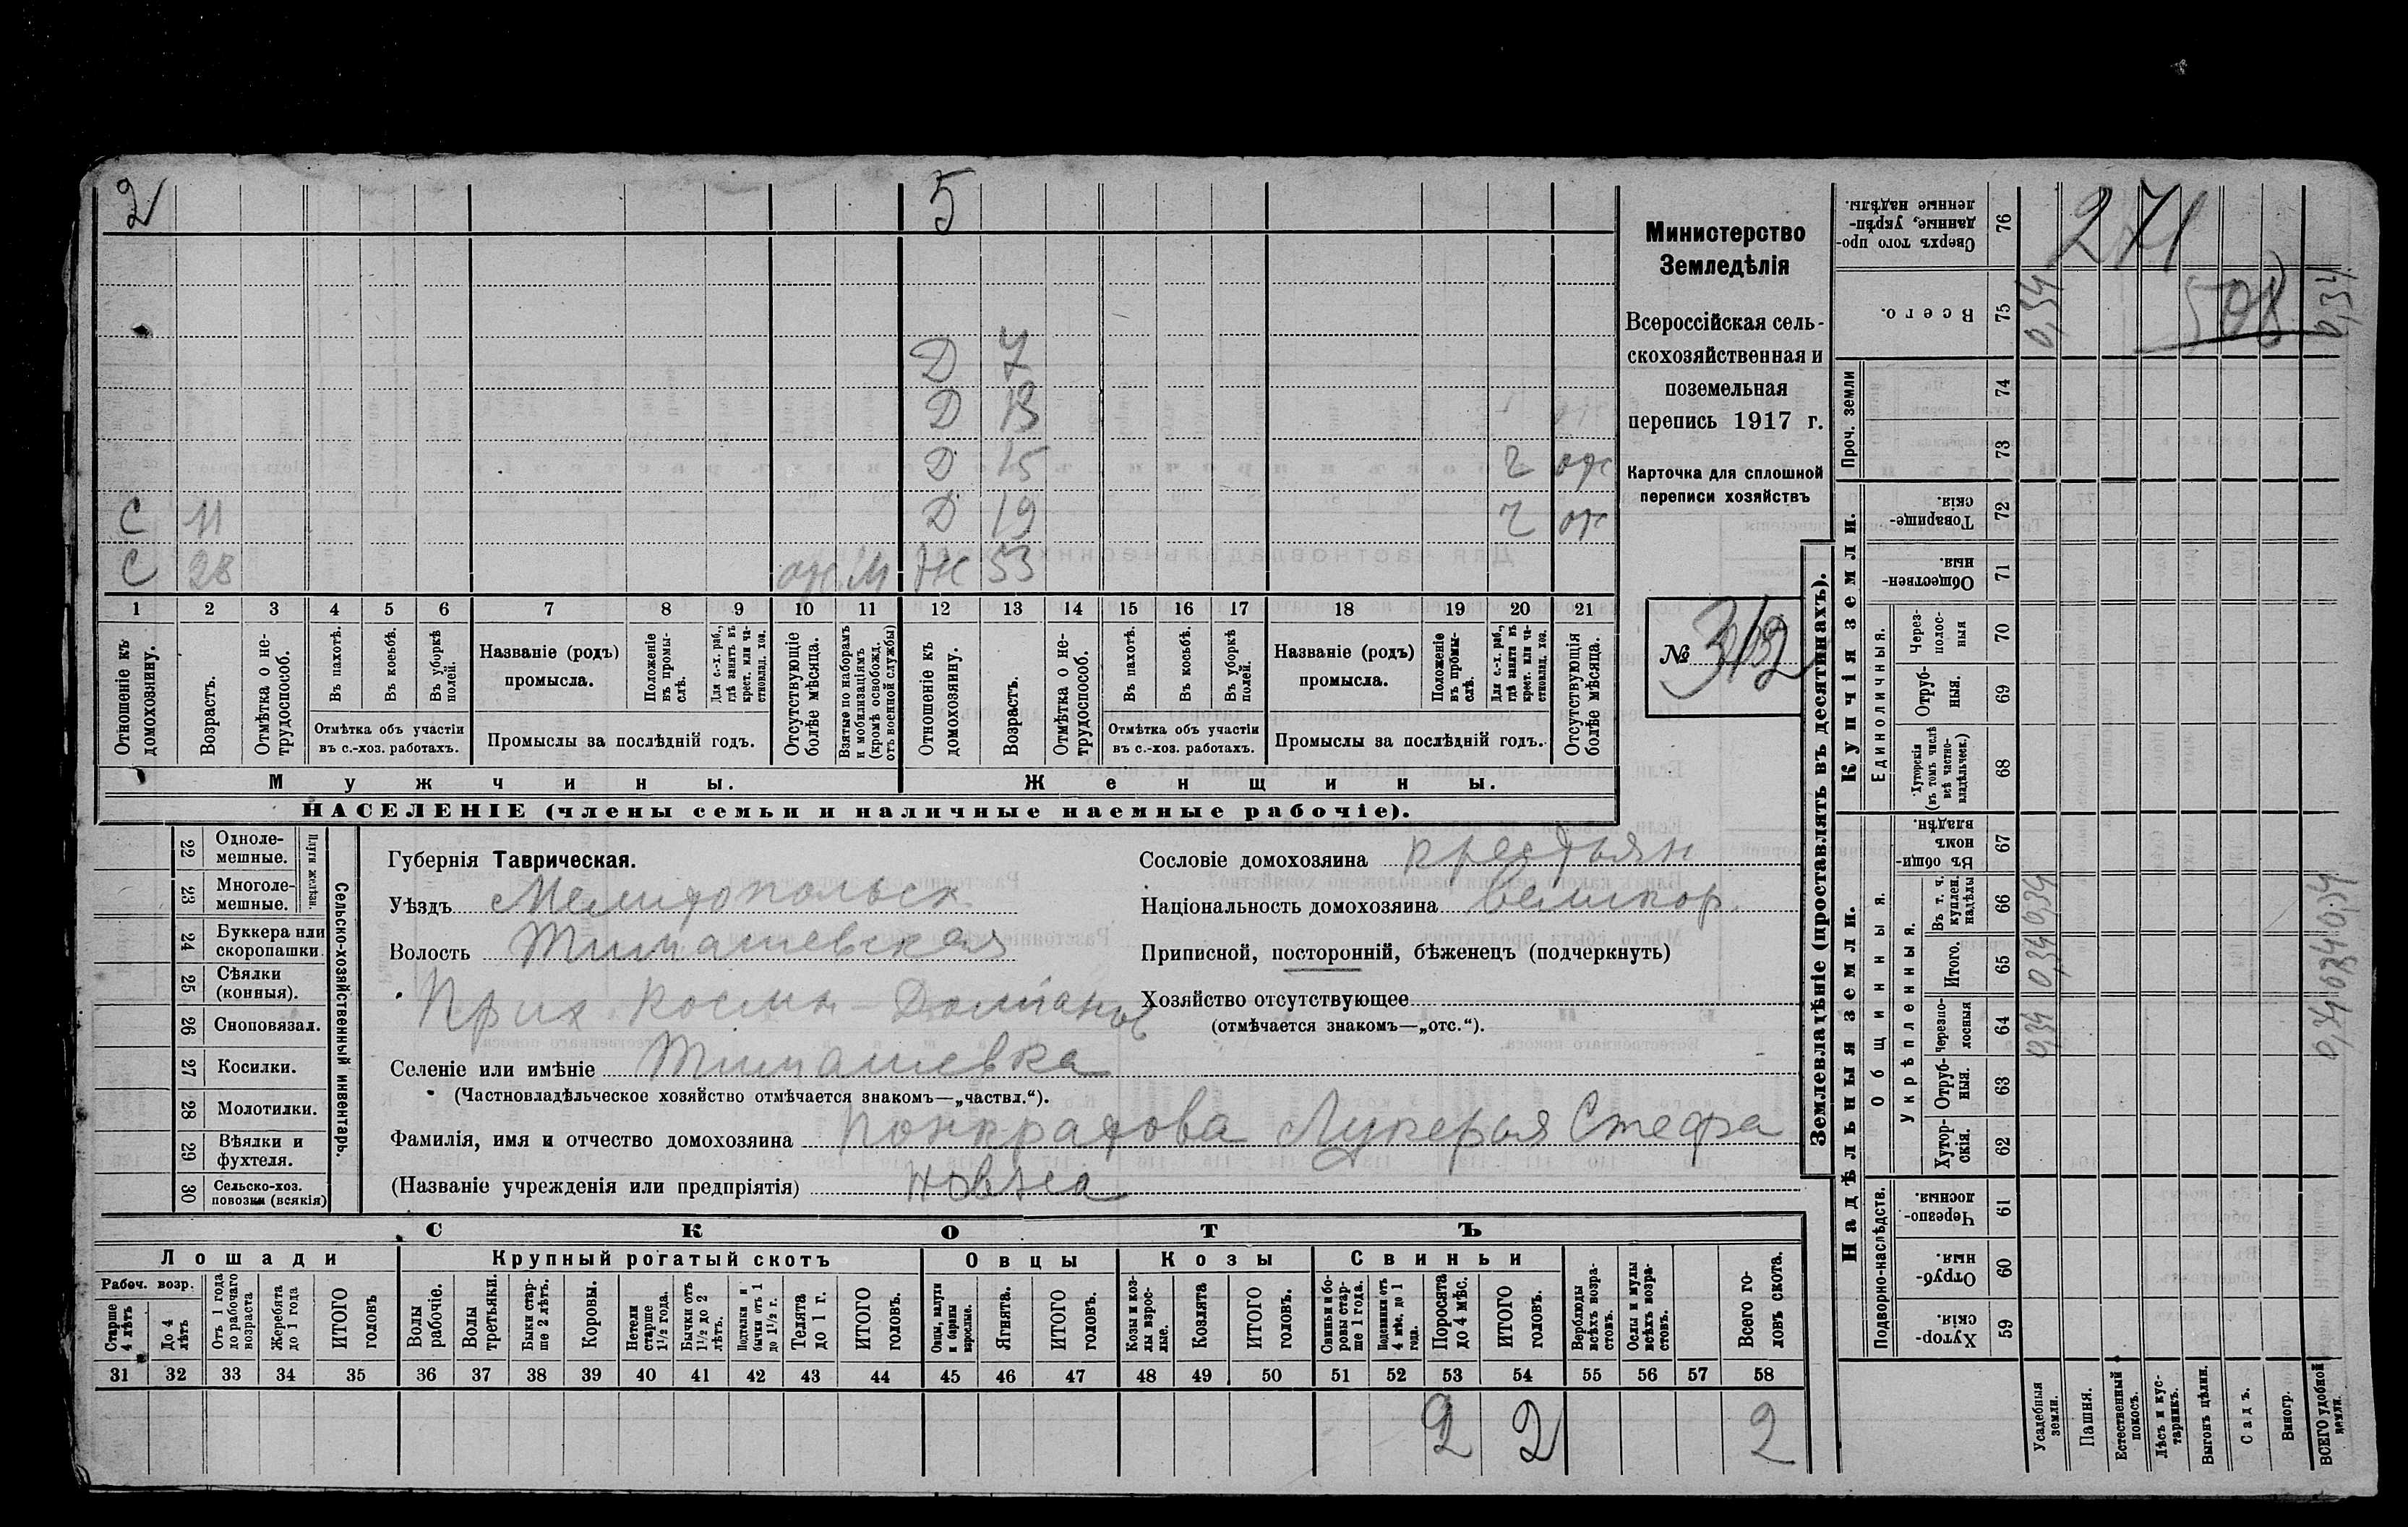 2 5
Д 7
Д 13
Д 15 2 от
Д 19 2 от
С 11
С 28 от. М Ж 53
1 2 3 4 5 6 7 8 9 10 11 12 13 14 15 16 17 18 19 20 21
Отношеніе къ домохозяину.
Возрастъ.
Отмѣтка о не-трудоспособ.
Въ пахотѣ.
Въ косьбѣ.
Въ уборкѣ полей.
Отмѣтка объ участіи въ с.-хоз. работахъ.
Названіе (родъ) промысла.
Положеніе въ промы-слѣ.
Для с.-х. раб., гдѣ занятъ въ крест. или ча-стновлад. хоз.
Промыслы за послѣдній годъ.
Отсутствующіе болѣе мѣсяца.
Взятые по наборамъ и мобилизаціямъ (кромѣ освобожд. отъ военной службы)
Отношеніе къ домохозяину.
Возрастъ.
Отмѣтка о не-трудоспособ.
Въ пахотѣ.
Въ косьбѣ.
Въ уборкѣ полей.
Отмѣтка объ участіи въ с.-хоз. работахъ.
Названіе (родъ) промысла.
Положеніе въ промы-слѣ.
Для с.-х. раб., гдѣ занята въ крест. или ча-стновлад. хоз.
Промыслы за послѣдній годъ.
Отсутствующія болѣе мѣсяца.
Мужчины. Женщины.
НАСЕЛЕНІЕ (члены семьи и наличные наемные рабочіе).
Министерство
Земледѣлія
Всероссійская сель-
скохозяйственная и
поземельная
перепись 1917 г.
Карточка для сплошной
переписи хозяйствъ
№ 312
Сельско-хозяйственный инвентарь.
Плуги желѣзн.
22 Одноле-мешные.
23 Многоле-мешные.
24 Буккера или скоропашки.
25 Сѣялки (конныя).
26 Сноповязал.
27 Косилки.
28 Молотилки.
29 Вѣялки и фухтеля.
30 Сельско-хоз. повозки (всякія)
Губернія Таврическая.
Уѣздъ Мелитопольск
Волость Тимашевская
Прих Космы-Даміанов
Селеніе или имѣніе Тимашевка
(Частновладѣльческое хозяйство отмѣчается знакомъ—„частвл.“).
Фамилія, имя и отчество домохозяина Понкратова Лукерья Стефа
(Названіе учрежденія или предпріятія) новна
Сословіе домохозяина крестьян
Національность домохозяина великор.
Приписной, посторонній, бѣженецъ (подчеркнуть)
Хозяйство отсутствующее
(отмѣчается знакомъ—„отс.“).
СКОТЪ
Лошади Крупный рогатый скотъ Овцы Козы Свиньи
Рабоч. возр.
Старше 4 лѣтъ
До 4 лѣтъ
Отъ 1 года до рабочаго возраста
Жеребята до 1 года
ИТОГО головъ
Волы рабочіе.
Волы третьяки.
Быки стар-ше 2 лѣтъ.
Коровы.
Нетели старше 1½ года.
Бычки отъ 1½ до 2 лѣтъ.
Подтелки и бычки отъ 1 до 1½ г.
Телята до 1 г.
ИТОГО головъ.
Овцы, валухи и бараны взрослые.
Ягнята.
ИТОГО головъ.
Козы и коз-лы взрос-лые.
Козлята
ИТОГО головъ.
Свиньи и бо-ровы стар-ше 1 года.
Подсвинки отъ 4 мѣс. до 1 года.
Поросята до 4 мѣс.
ИТОГО головъ.
Верблюды всѣхъ возра-стовъ.
Ослы и мулы всѣхъ возра-стовъ.
Всего го-ловъ скота.
31 32 33 34 35 36 37 38 39 40 41 42 43 44 45 46 47 48 49 50 51 52 53 54 55 56 57 58
2 2 2
Землевладѣніе (проставлять въ десятинахъ).
Надѣльныя земли. Купчія земли. Проч. земли
Подворно-наслѣдств.
Общинныя.
Укрѣпленныя.
Единоличныя.
Хутор-скія. 59
Отруб-ныя. 60
Черезпо-лосныя. 61
Хутор-скія. 62
Отруб-ныя. 63
Черезпо-лосныя 64
Итого. 65
Въ т. ч. куплен. надѣлы 66
Въ общи-номъ владѣн. 67
Хуторскія (въ томъ числѣ всѣ частно-владѣльческ.) 68
Отруб-ныя. 69
Через-полос-ныя 70
Обществен-ныя 71
Товарище-скія. 72
73
74
Всего. 75
Сверхъ того про-данные, укрѣп-ленные надѣлы. 76
271
508
Усадебныя земли. 0,34 0,34 0,34 0,34
Пашня.
Естественный покосъ.
Лѣсъ и кус-тарникъ.
Выгонъ цѣлин.
Садъ.
Виногр.
ВСЕГО удобной земли. 0,34 0,34 0,34 0,34